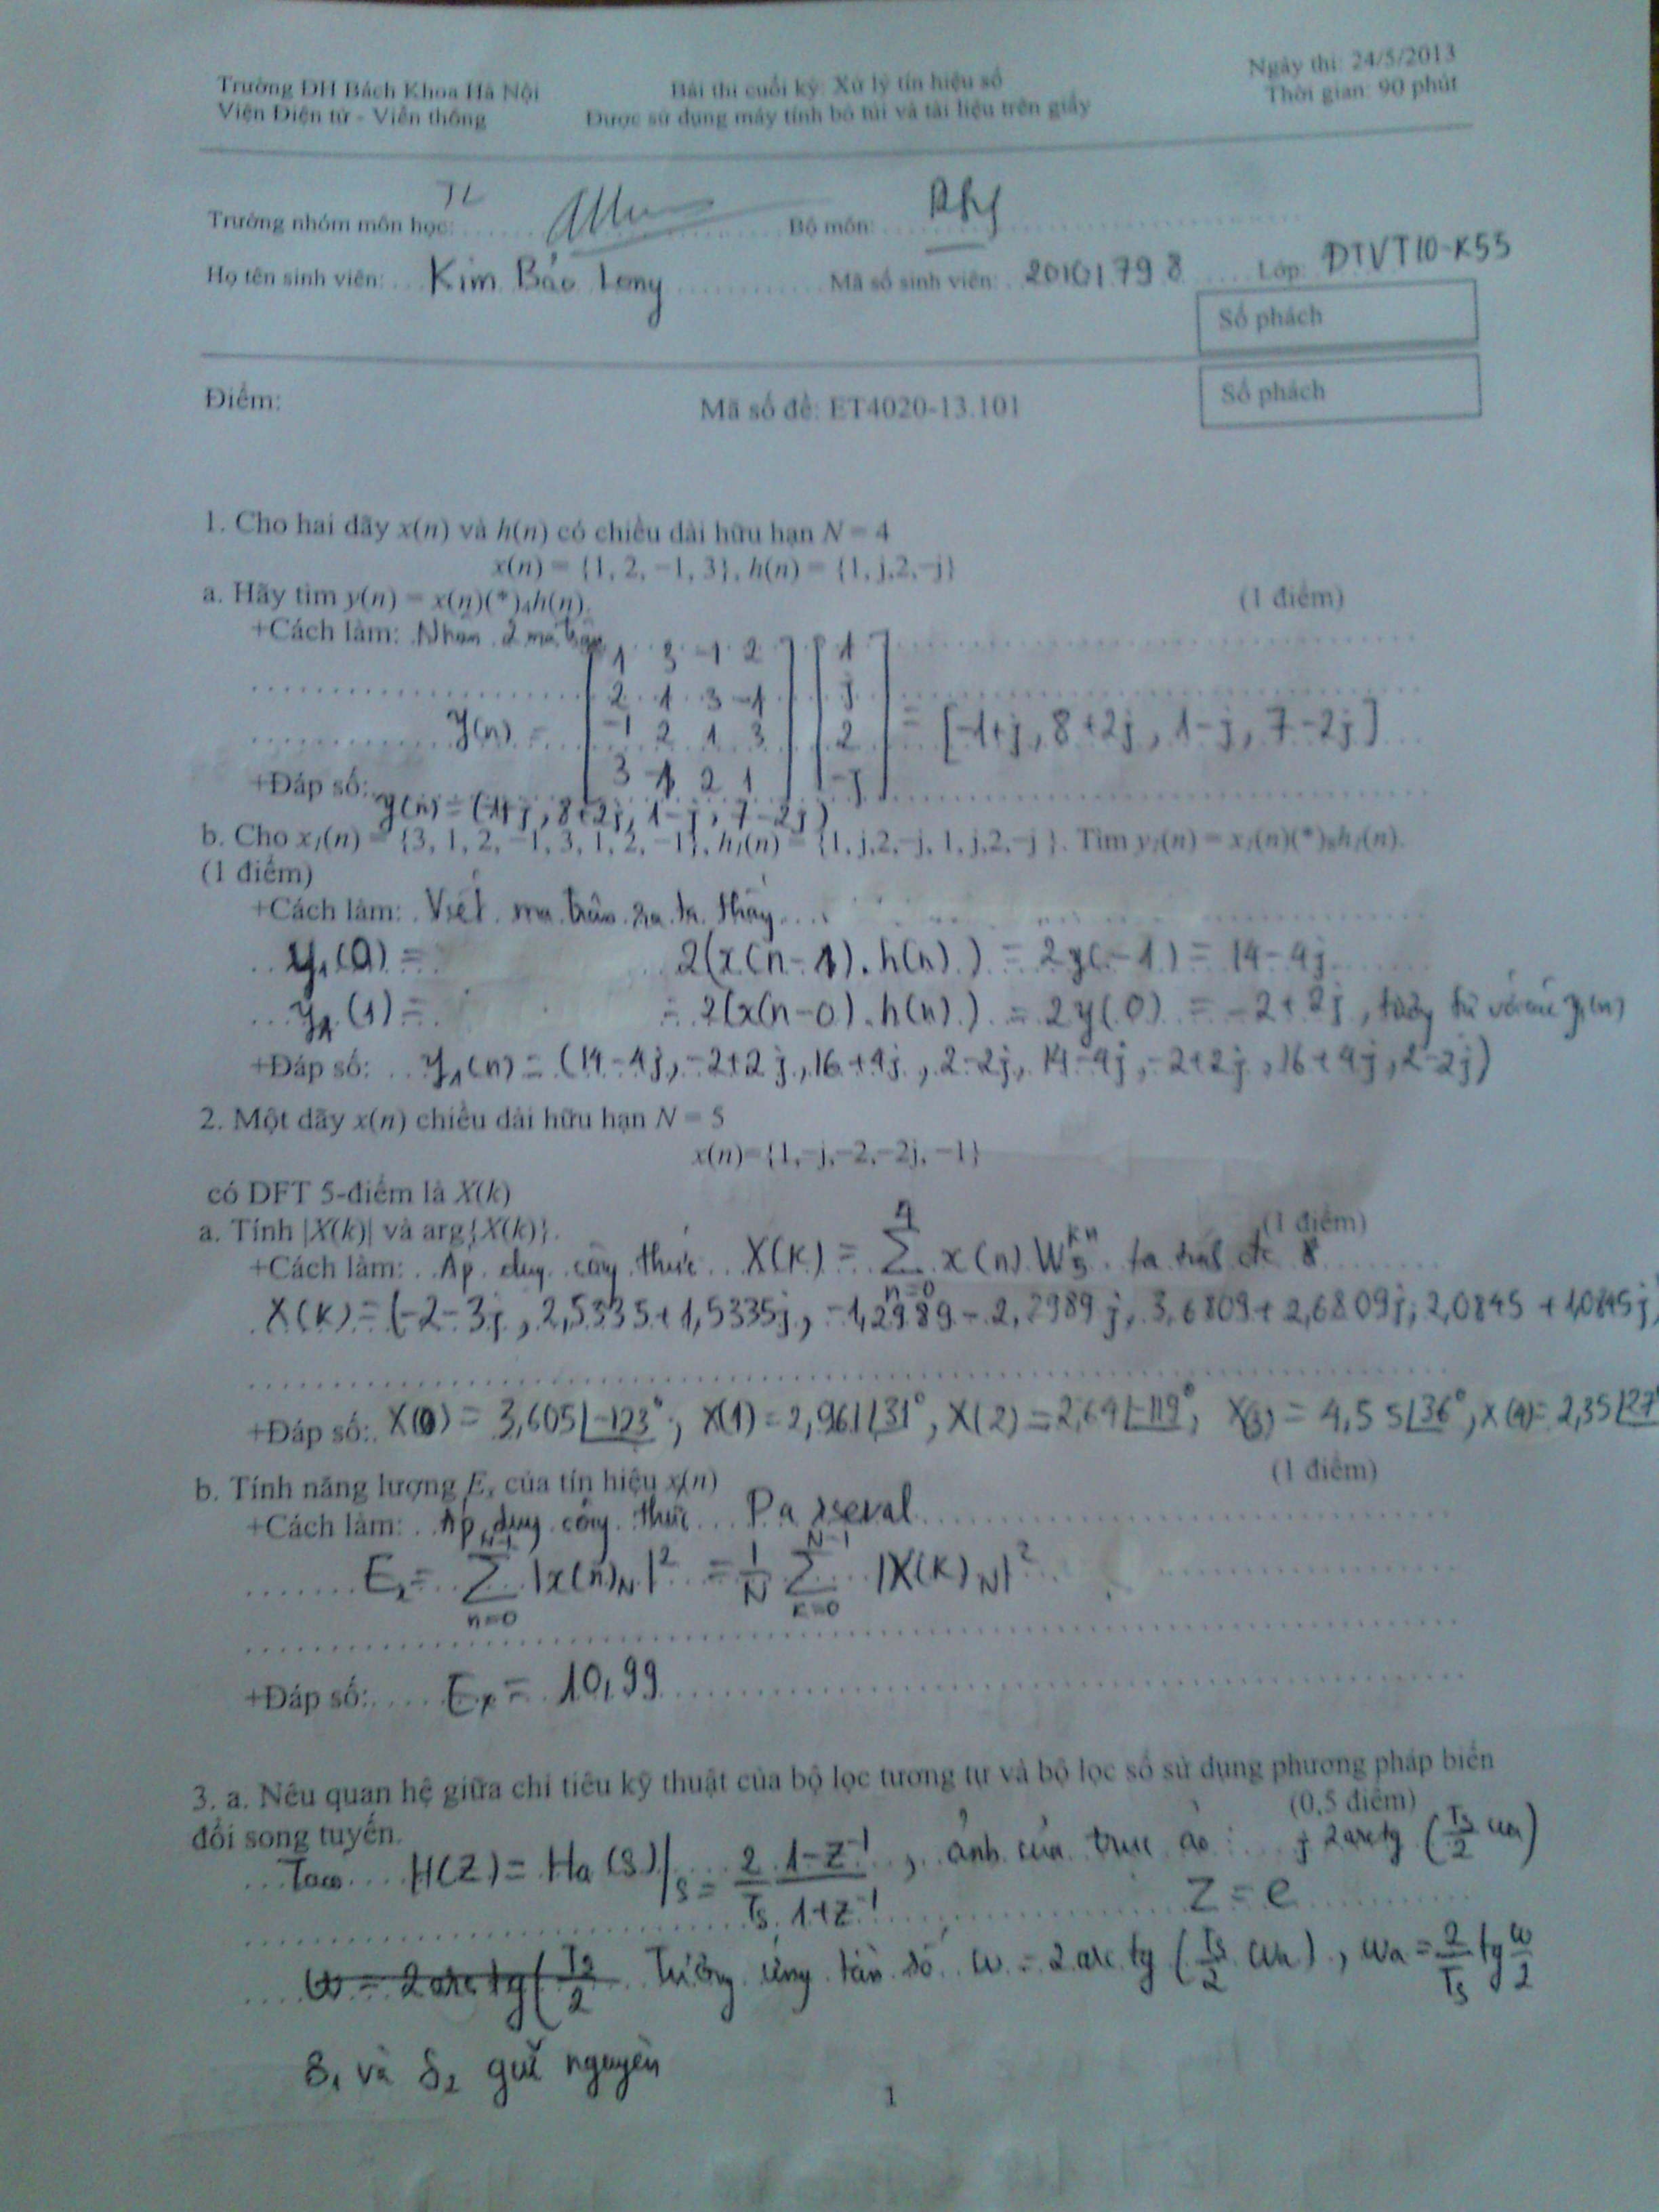 Trường ĐH Bách Khoa Hà Nội
Viện Điện tử - Viễn thông
Bài thi cuối kỳ: Xử lý tín hiệu số
Được sử dụng máy tính bỏ túi và tài liệu trên giấy
Ngày thi: 24/5/2013
Thời gian: 90 phút
Trưởng nhóm môn học:
Bộ môn:
Họ tên sinh viên: Kim Bảo Long Mã số sinh viên: 20101798 Lớp: ĐTVT10-K55
Số phách
Điểm: Mã số đề: ET4020-13.101 Số phách
1. Cho hai dãy x(n) và h(n) có chiều dài hữu hạn N = 4
x(n) = {1, 2, −1, 3}, h(n) = {1, j,2,-j}
a. Hãy tìm y(n) = x(n)(*)₄h(n). (1 điểm)
+Cách làm: Nhân 2 ma trận
1 3 -1 2 1
2 1 3 -1 j
y(n) = -1 2 1 3 2 = [-1+j, 8+2j, 1-j, 7-2j]
3 -1 2 1 -j
+Đáp số: y(n) = (-1+j, 8+2j, 1-j, 7-2j)
b. Cho x₁(n) = {3, 1, 2, −1, 3, 1, 2, −1}, h₁(n) = {1, j,2,-j, 1, j,2,-j }. Tìm y₁(n) = x₁(n)(*)₈h₁(n).
(1 điểm)
+Cách làm: Viết ma trận ra ta thấy
y₁(0) = 2(x(n-1).h(n)) = 2y(-1) = 14-4j
y₁(1) = = 2(x(n-0).h(n)) = 2y(0) = -2+2j, tương tự với các y₁(n)
+Đáp số: y₁(n) = (14-4j, -2+2j, 16+4j, 2-2j, 14-4j, -2+2j, 16+4j, 2-2j)
2. Một dãy x(n) chiều dài hữu hạn N = 5
x(n)={1,-j,−2,−2j, −1}
có DFT 5-điểm là X(k)
a. Tính |X(k)| và arg{X(k)}. (1 điểm)
+Cách làm: Áp dụng công thức X(k) = Σ⁴ₙ₌₀ x(n) W₅ᵏⁿ ta tính đc
X(k) = (-2-3j, 2,5335+1,5335j, -1,2989-2,2989j, 3,6809+2,6809j, 2,0845+1,0845j)
+Đáp số: X(0) = 3,605∠-123°; X(1) = 2,961∠31°, X(2) = 2,64∠-119°, X(3) = 4,55∠36°, X(4) = 2,35∠27°
b. Tính năng lượng Eₓ của tín hiệu x(n) (1 điểm)
+Cách làm: Áp dụng công thức Parseval
Eₓ = Σᴺ⁻¹ₙ₌₀ |x(n)N|² = 1/N Σᴺ⁻¹ₖ₌₀ |X(k)N|²
+Đáp số: Eₓ = 10,99
3. a. Nêu quan hệ giữa chỉ tiêu kỹ thuật của bộ lọc tương tự và bộ lọc số sử dụng phương pháp biến
đổi song tuyến. (0,5 điểm)
H(z) = Ha(s)|s = 2/Ts 1-z⁻¹/1+z⁻¹, ảnh của trục ảo: z = e^(j 2arctg(Ts/2 ωa))
ω = 2arctg(Ts/2 Tương ứng tần số ω = 2arctg(Ts/2 ωa), ωa = 2/Ts tg ω/2
δ₁ và δ₂ giữ nguyên
1